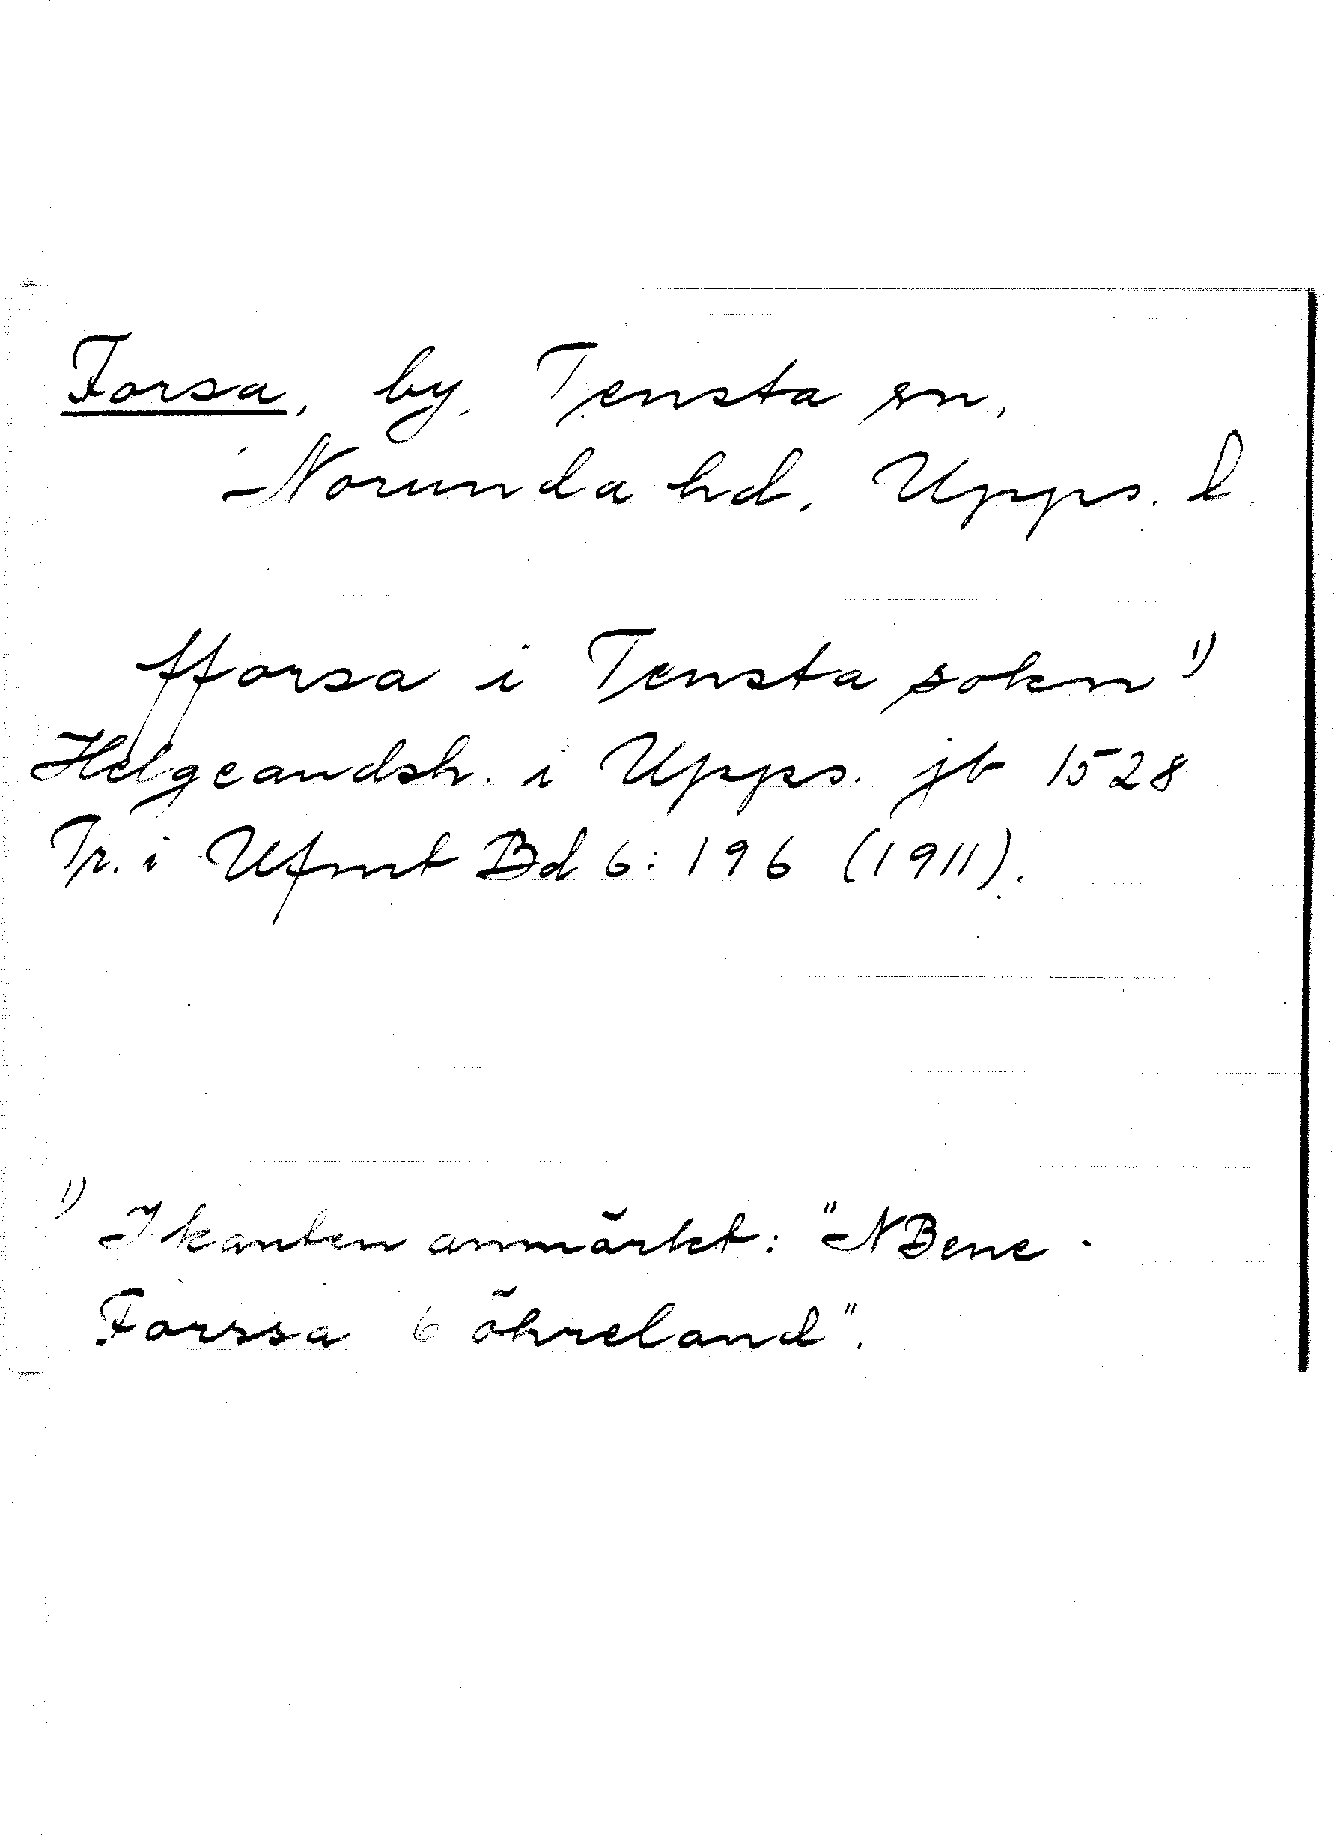 Forsa, by, Tensta sn,
Norunda hd, Upps. l.
fforsa i Tensta sokn 1)
Helgeandsh. i Upps. jb 1528
Tr. i Ufmt Bd 6: 196 (1911).
1) I kanten anmärkt: "NBene.
Forssa 6 öhreland".